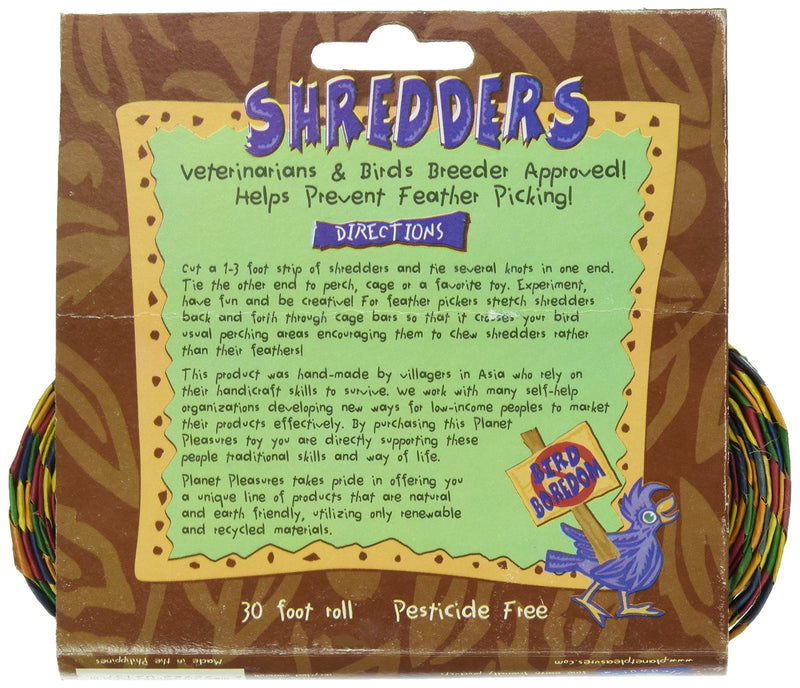 SHREDDERS
Veterinarians & Birds Breeder Approved!
Helps Prevent Feather Picking!
DIRECTIONS
Cut a 1-3 foot strip of shredders and tie several knots in one end.
Tie the other end to perch, cage or a favorite toy. Experiment,
have fun and be creative! For feather pickers stretch shredders
back and forth through cage bars so that it crosses your bird
usual perching areas encouraging them to chew shredders rather
than their feathers!
This product was hand-made by villagers in Asia who rely on
their handicraft skills to survive. We work with many self-help
organizations developing new ways for low-income peoples to market
their products effectively. By purchasing this Planet
Pleasures toy you are directly supporting these
people traditional skills and way of life.
Planet Pleasures takes pride in offering you
a unique line of products that are natural
and earth friendly, utilizing only renewable
and recycled materials.
BIRD
BOREDOM
30 foot roll Pesticide Free
Made in the Philippines
www.planetpleasures.com